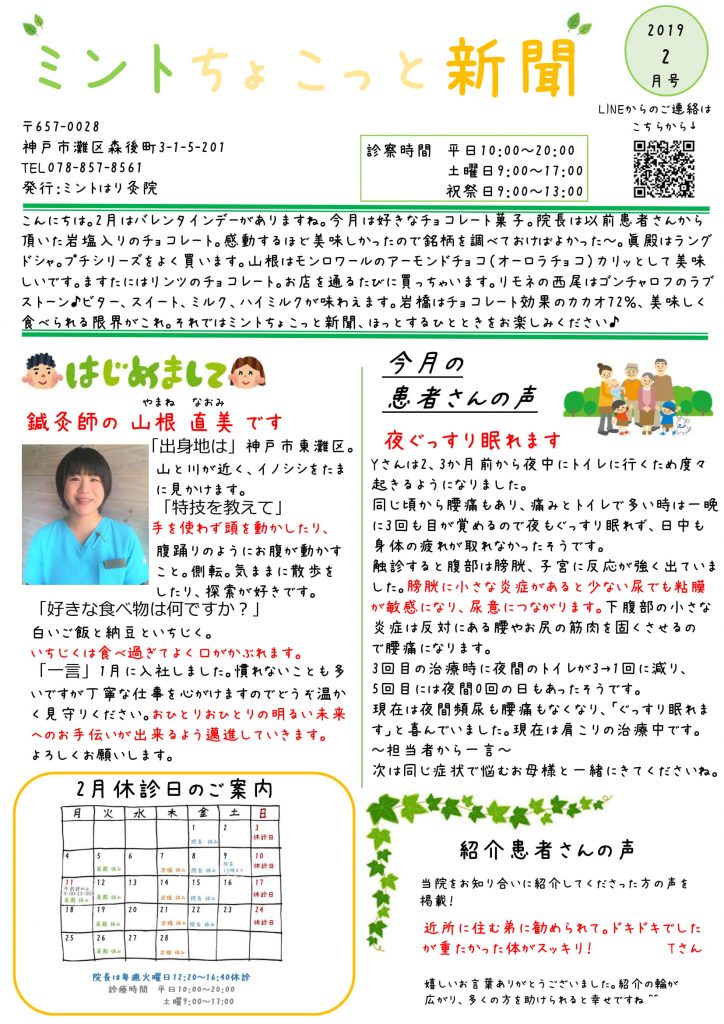 ミントちょこっと新聞
2019
2
月号
LINEからのご連絡は
こちらから↓
〒657-0028
神戸市灘区森後町3-1-5-201
TEL078-857-8561
発行:ミントはり灸院
診察時間 平日10:00~20:00
土曜日9:00~17:00
祝祭日9:00~13:00
こんにちは。2月はバレンタインデーがありますね。今月は好きなチョコレート菓子。院長は以前患者さんから
頂いた岩塩入りのチョコレート。感動するほど美味しかったので銘柄を調べておけばよかった~。眞殿はラング
ドシャ。プチシリーズをよく買います。山根はモンロワールのアーモンドチョコ(オーロラチョコ)カリッとして美味
しいです。ますたにはリンツのチョコレート。お店を通るたびに買っちゃいます。リモネの西尾はゴンチャロフのラブ
ストーン♪ビター、スイート、ミルク、ハイミルクが味わえます。岩橋はチョコレート効果のカカオ72%、美味しく
食べられる限界がこれ。それではミントちょこっと新聞、ほっとするひとときをお楽しみください♪
はじめまして
やまね なおみ
鍼灸師の 山根 直美 です
「出身地は」神戸市東灘区。
山と川が近く、イノシシをたま
に見かけます。
「特技を教えて」
手を使わず頭を動かしたり、
腹踊りのようにお腹が動かす
こと。側転。気ままに散歩を
したり、探索が好きです。
「好きな食べ物は何ですか?」
白いご飯と納豆といちじく。
いちじくは食べ過ぎてよく口がかぶれます。
「一言」1月に入社しました。慣れないことも多
いですが丁寧な仕事を心がけますのでどうぞ温か
く見守りください。おひとりおひとりの明るい未来
へのお手伝いが出来るよう邁進していきます。
よろしくお願いします。
今月の
患者さんの声
夜ぐっすり眠れます
Yさんは2、3か月前から夜中にトイレに行くため度々
起きるようになりました。
同じ頃から腰痛もあり、痛みとトイレで多い時は一晩
に3回も目が覚めるので夜もぐっすり眠れず、日中も
身体の疲れが取れなかったそうです。
触診すると腹部は膀胱、子宮に反応が強く出ていま
した。膀胱に小さな炎症があると少ない尿でも粘膜
が敏感になり、尿意につながります。下腹部の小さな
炎症は反対にある腰やお尻の筋肉を固くさせるの
で腰痛になります。
3回目の治療時に夜間のトイレが3→1回に減り、
5回目には夜間0回の日もあったそうです。
現在は夜間頻尿も腰痛もなくなり、「ぐっすり眠れま
す」と喜んでいました。現在は肩こりの治療中です。
~担当者から一言~
次は同じ症状で悩むお母様と一緒にきてくださいね。
2月休診日のご案内
月 火 水 木 金 土 日
1 2 3
院長 休み 休診日
4 5 6 7 8 9 10
眞殿 休み 岩橋 休み 院長 休み 院長 13時まで 休診日
11 12 13 14 15 16 17
午前診のみ 9:00-13:00 眞殿 休み 岩橋 休み 院長 休み 休診日
18 19 20 21 22 23 24
眞殿 休み 岩橋 休み 院長 休み 休診日
25 26 27 28
眞殿 休み 岩橋 休み
院長は毎週火曜日12:20~16:40休診
診療時間 平日10:00~20:00
土曜9:00~17:00
紹介患者さんの声
当院をお知り合いに紹介してくださった方の声を
掲載!
近所に住む弟に勧められて。ドキドキでした
が重たかった体がスッキリ! Tさん
嬉しいお言葉ありがとうございました。紹介の輪が
広がり、多くの方を助けられると幸せですね^^